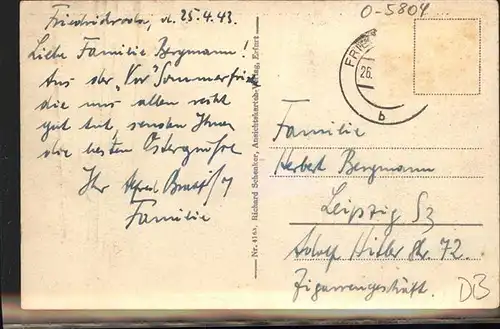 O-5804
Friedrichroda, d. 25.4.43.
Liebe Familie Bergmann!
Aus der "Vor" Sommerfrische
die uns allen recht
gut tut, senden Ihnen
die besten Ostergrüße
Ihr Alfred
Familie
Nr. 4165, Richard Schenker, Ansichtskarten-Verlag, Erfurt
FRIE
26.
b
Familie
Herbert Bergmann
Leipzig S3
Adolf Hitler Str. 72.
Zigarrengeschäft.
DB